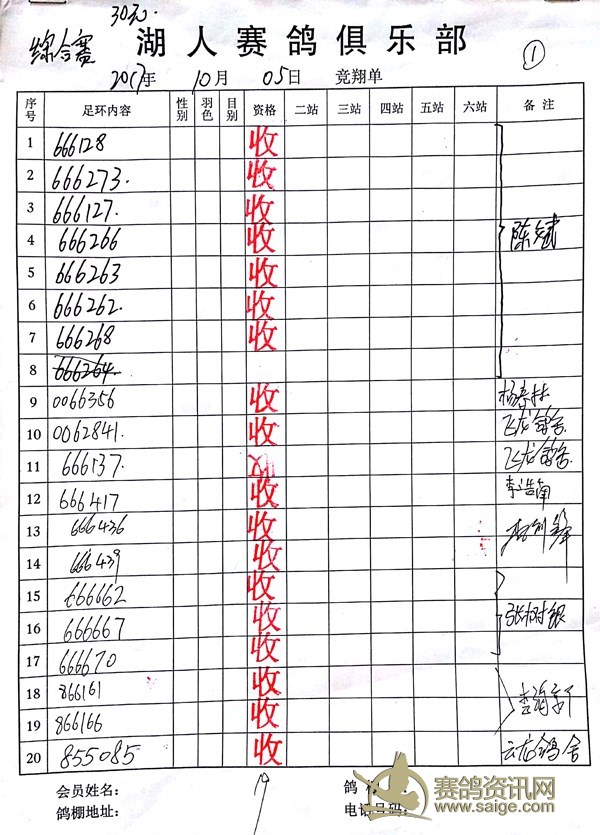 30元.
综合赛 湖人赛鸽俱乐部 ①
2017年 10月 05日 竞翔单
序号 足环内容 性别 羽色 目别 资格 二站 三站 四站 五站 六站 备注
1 666128 收
2 666273. 收
3 666127. 收
4 666266 收 陈斌
5 666263 收
6 666262. 收
7 666268 收
8 666264
9 0066356 收 杨春林
10 0062841. 收 飞龙鸽舍
11 666137. 飞龙鸽舍
12 666417 收 李浩南
13 666436 收
14 666439 收
15 666662 收
16 666667 收 张树银
17 666670 收
18 866161 收
19 866166 收
20 855085 收 云龙鸽舍
会员姓名: 19 鸽
鸽棚地址: 电话号码:
赛鸽资讯网
www.saige.com